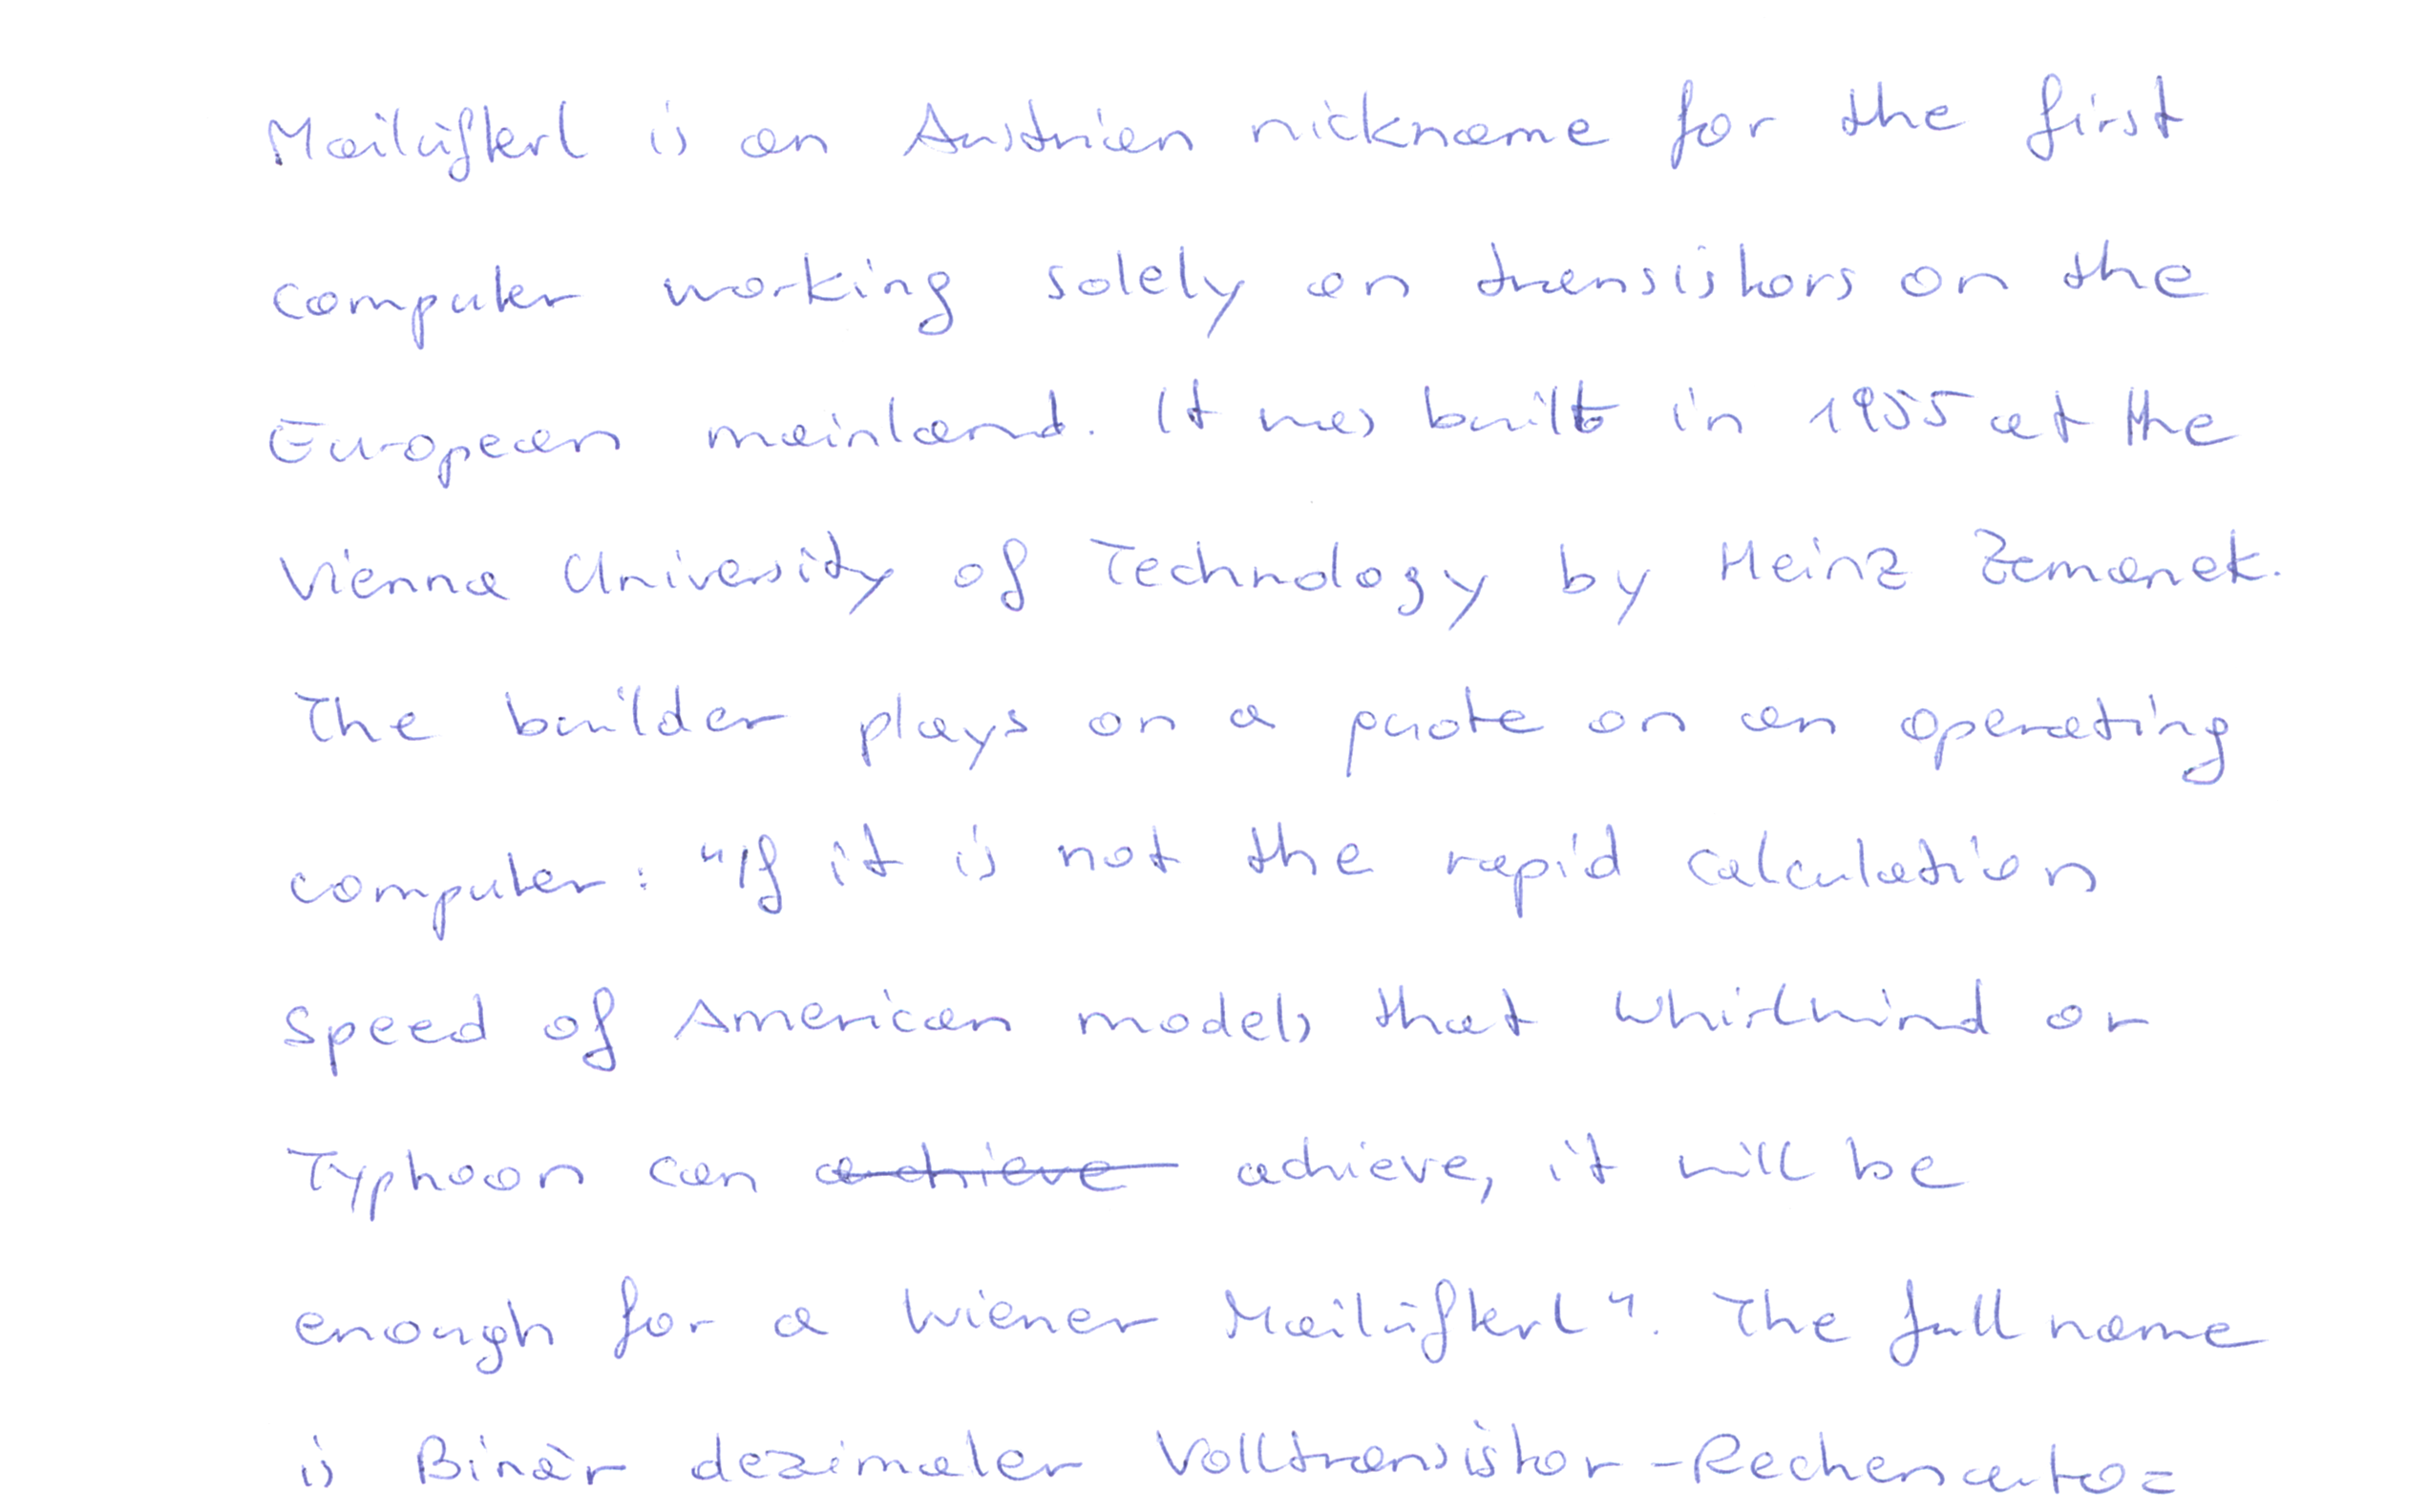 Mailüfterl is an Austrian nickname for the first
computer working solely on transistors on the
European mainland. It was built in 1955 at the
Vienna University of Technology by Heinz Zemanek.
The builder plays on a quote on an operating
computer: "If it is not the rapid calculation
speed of American models that Whirlwind or
Typhoon can achieve achieve, it will be
enough for a Wiener Mailüfterl". The full name
is Binär dezimaler Volltransistor-Rechenauto=